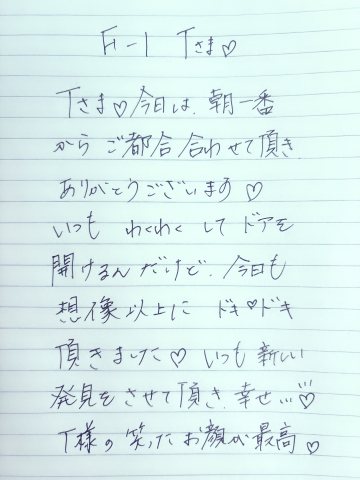 F-1 Tさま♡
Tさま♡今日は、朝一番
から ご都合合わせて頂き、
ありがとうございます♡
いつも わくわく して ドアを
開けるんだけど、今日も
想像以上に ドキ♡ドキ
頂きました♡ いつも 新しい
発見をさせて頂き、幸せ…♡
T様の 笑った お顔が 最高♡